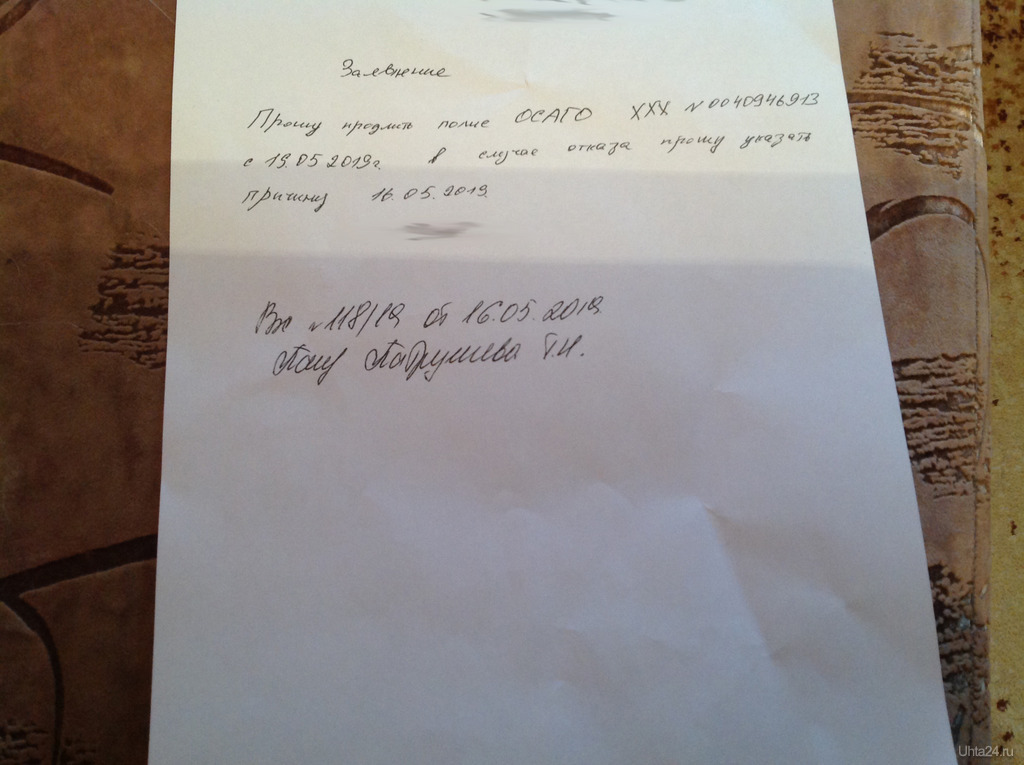 Заявление
Прошу продлить полис ОСАГО XXX №0040946913
с 19.05.2019г. в случае отказа прошу указать
причину 16.05.2019
Вх №118/19 от 16.05.2019
Патрушева Т.И.
Uhta24.ru